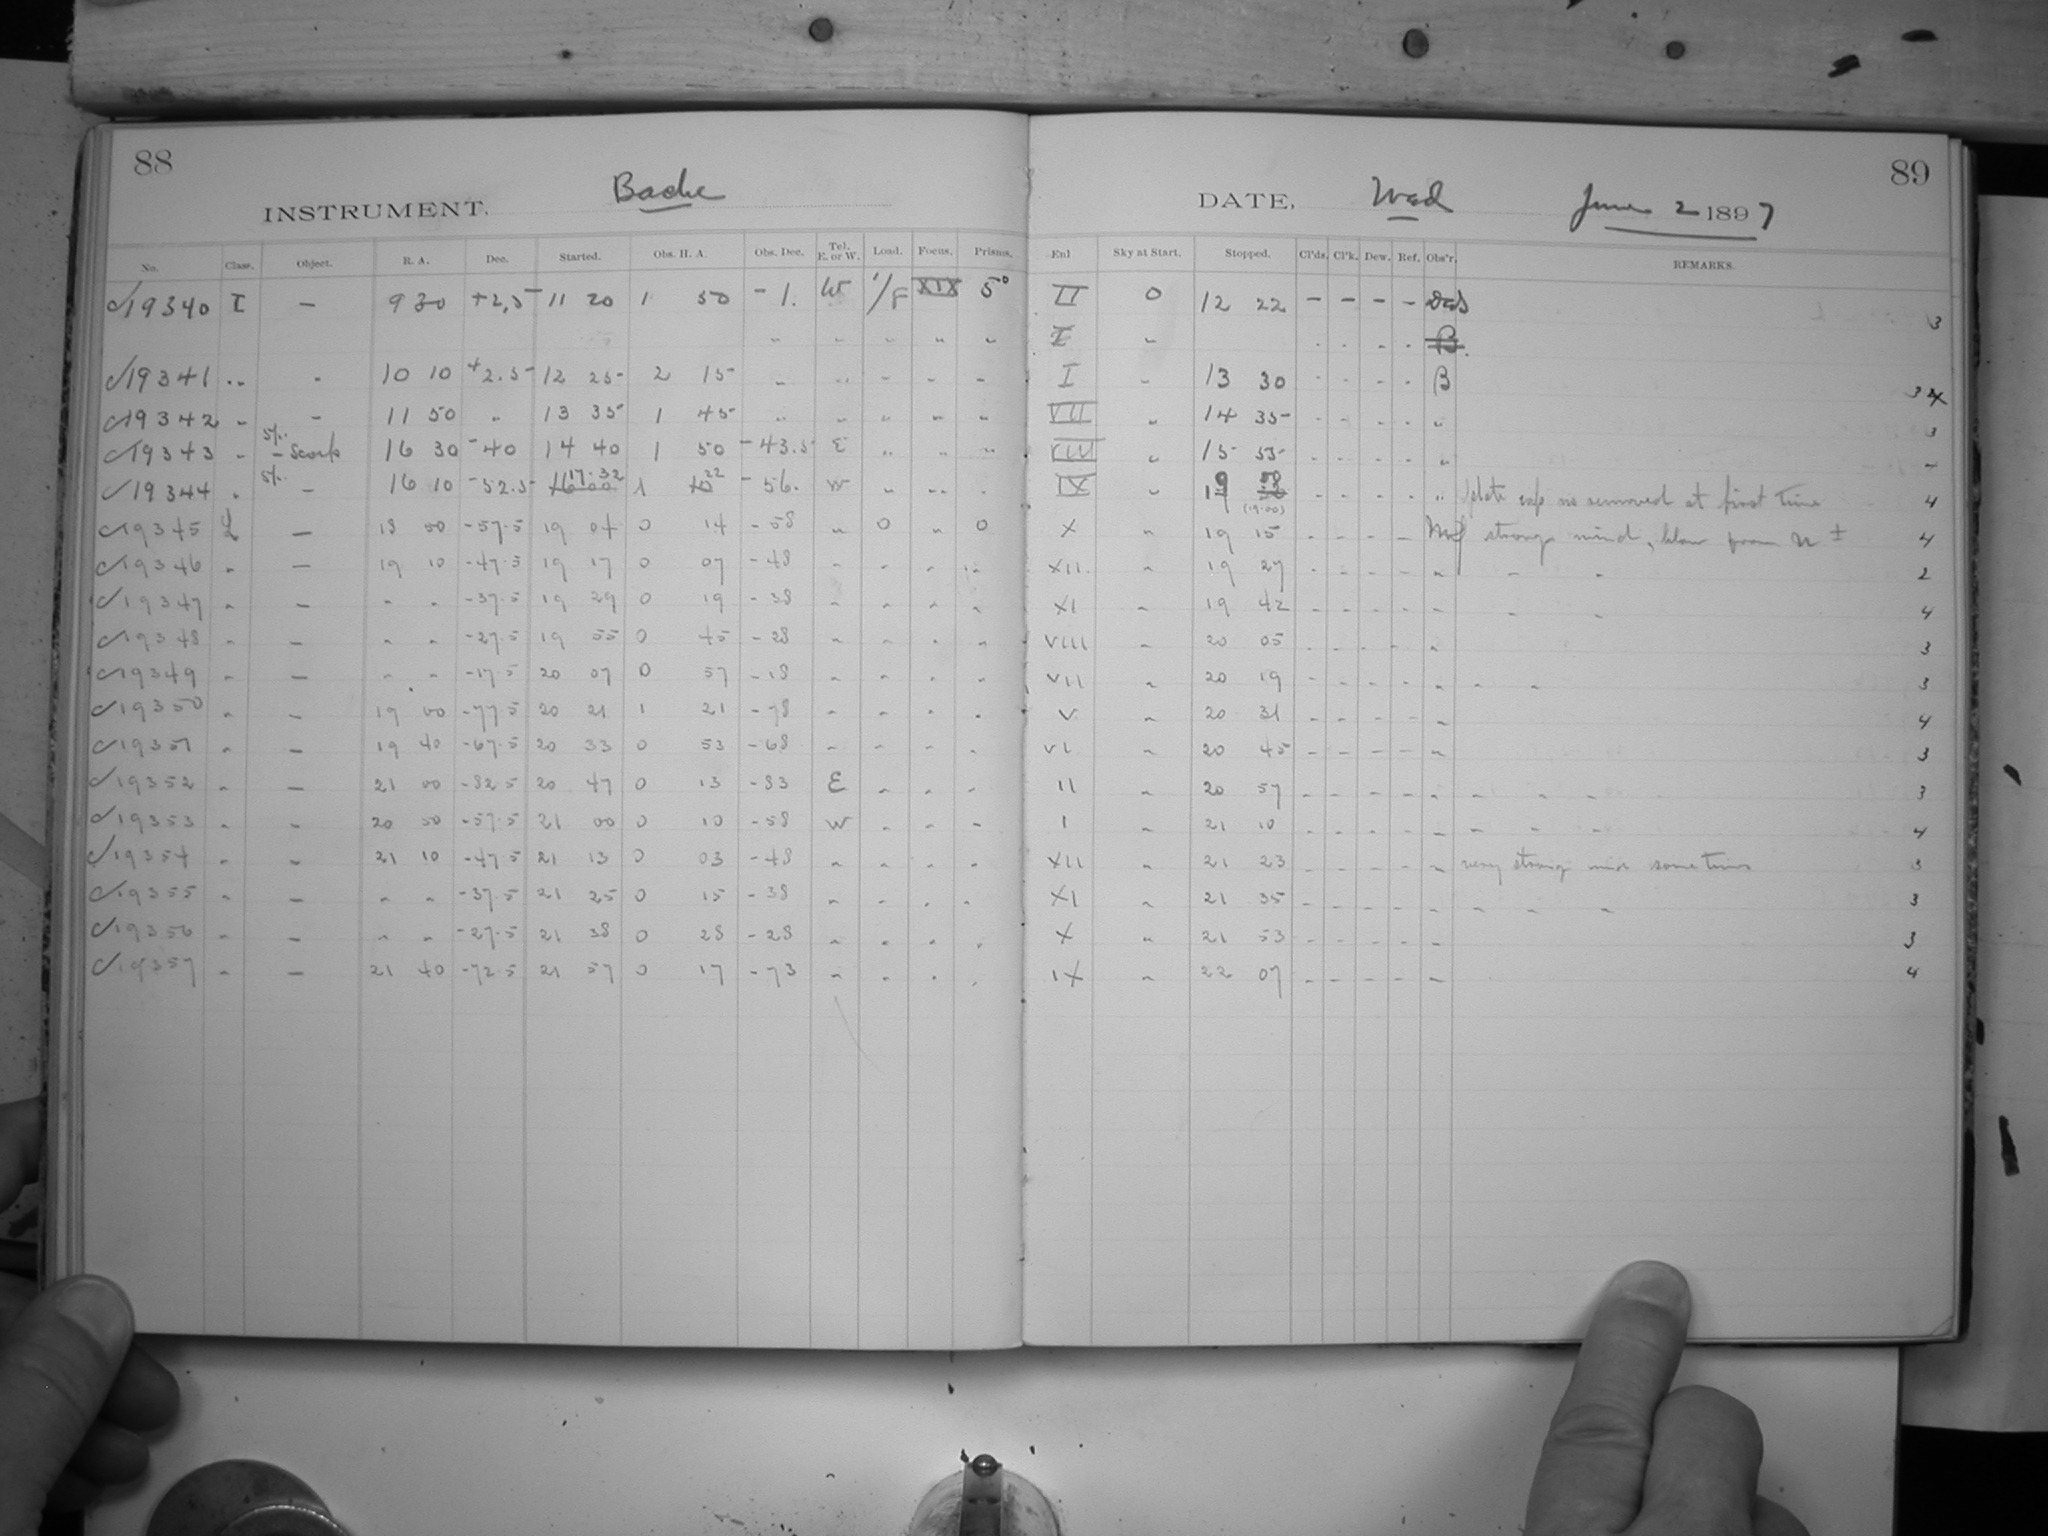 88
INSTRUMENT. Bache
No. Class. Object. R. A. Dec. Started. Obs. H. A. Obs. Dec. Tel. E. or W. Load. Focus. Prisms.
✓19340 I – 9 30 +2.5 11 20 1 50 -1. W 1/F XIX 5°
" " " " "
✓19341 " " 10 10 +2.5 12 25 2 15 " " " " "
✓19342 " – 11 50 " 13 35 1 45 " " " " "
✓19343 " – Scorp 16 30 -40 14 40 1 50 -43.5 E " " "
✓19344 " – 16 10 -52.5 17.32 1 22 -56. W " " "
✓19345 L – 18 50 -57.5 19 04 0 14 -58 " 0 " 0
✓19346 " – 19 10 -47.5 19 17 0 07 -48 " " " "
✓19347 " – " " -37.5 19 29 0 19 -38 " " " "
✓19348 " – " " -27.5 19 55 0 45 -28 " " " "
✓19349 " – " " -17.5 20 07 0 57 -18 " " " "
✓19350 " – 19 00 -77.5 20 21 1 21 -78 " " " "
✓19351 " – 19 40 -67.5 20 33 0 53 -68 " " " "
✓19352 " – 21 00 -82.5 20 47 0 13 -83 E " " "
✓19353 " – 20 50 -57.5 21 00 0 10 -58 W " " "
✓19354 " – 21 10 -47.5 21 13 0 03 -48 " " " "
✓19355 " – " " -37.5 21 25 0 15 -38 " " " "
✓19356 " – " " -27.5 21 38 0 28 -28 " " " "
✓19357 " – 21 40 -72.5 21 57 0 17 -73 " " " "
89
DATE, Wed June 2 1897
Enl Sky at Start. Stopped. Cl'ds. Cl'k. Dew. Ref. Obs'r. REMARKS.
II 0 12 22 – – – – 3
I " " " " " B
I " 13 30 " " " " B 3
VII " 14 35 " " " " " 3
VIII " 15 55 " " " " "
IX " 19 58 (19.00) " " " " " plate cap no removed at first time 4
X " 19 15 " " " " strong wind, blow from N ± 4
XII " 19 27 " " " " " " " 2
XI " 19 42 " " " " " " " 4
VIII " 20 05 " " " " " 3
VII " 20 19 " " " " " " " 3
V " 20 31 " " " " " 4
VI " 20 45 " " " " " 3
II " 20 57 " " " " " " " " 3
I " 21 10 " " " " " " " " 4
XII " 21 23 " " " " " very strong wind some times 3
XI " 21 35 " " " " " " " " 3
X " 21 53 " " " " " 3
IX " 22 07 " " " " " 4